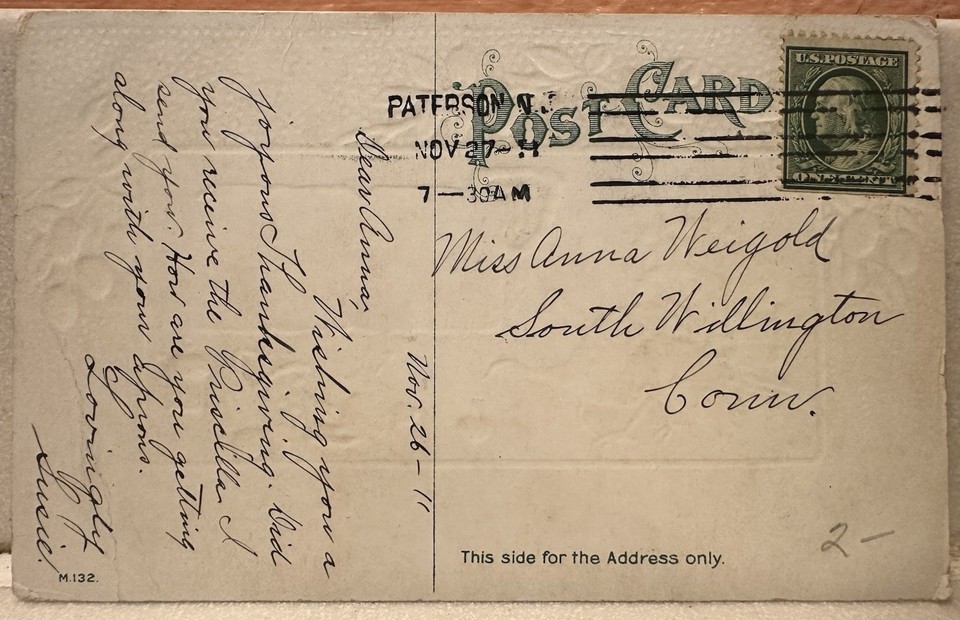 POST CARD
U.S. POSTAGE
ONE CENT
PATERSON N.J.
NOV 27-11
7-30AM
Miss Anna Weigold
South Willington
Conn.
This side for the Address only.
2-
Nov. 26-11
Dear Anna,
Wishing you a
joyous Thanksgiving. Did
you receive the Priscilla I
send you. How are you getting
along with your aprons.
Lovingly
Susie.
M.132.